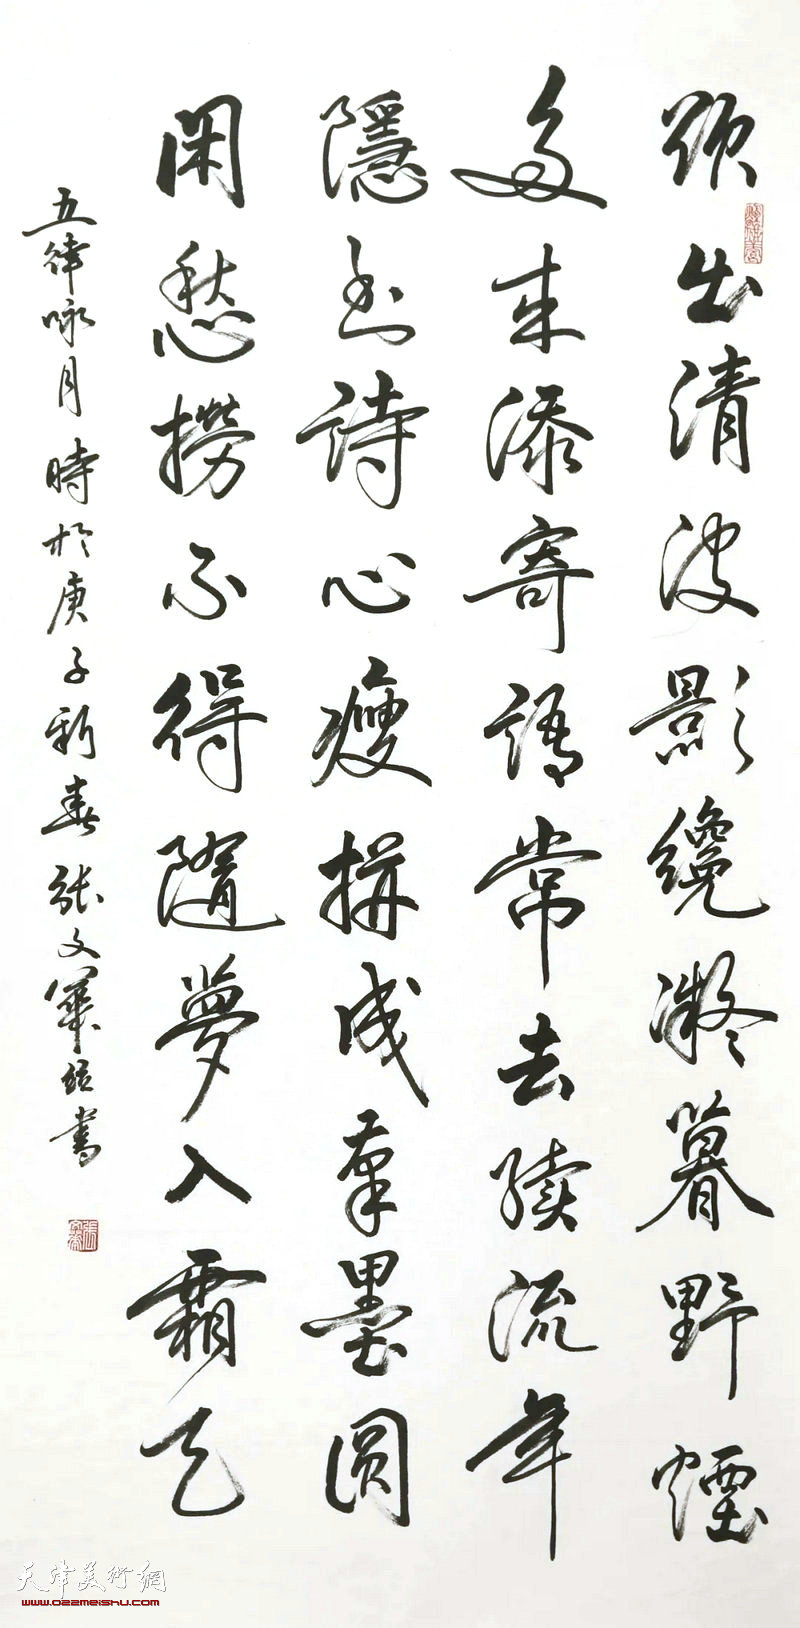 欲出清波影纔凝暮野煙
多來添寄語常去續流年
隱到詩心瘦拼成筆墨圓
閑愁撈不得隨夢入霜天
五律咏月 時於庚子新春 張文書
天津美術網
www.022meishu.com